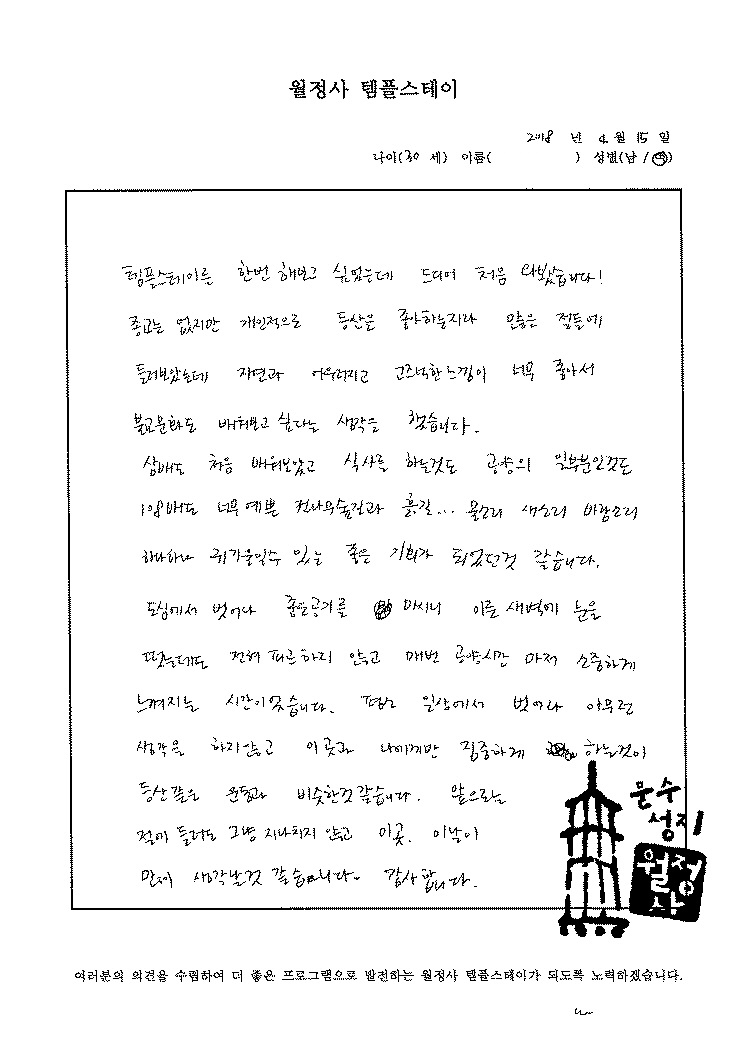 월정사 템플스테이
2018 년 4 월 15 일
나이(30 세) 이름( ) 성별(남/여)
템플스테이를 한번 해보고 싶었는데 드디어 처음 와봤습니다!
종교는 없지만 개인적으로 등산을 좋아하는지라 많은 절들에
들려보았는데 자연과 어우러지고 고즈넉한 느낌이 너무 좋아서
불교문화도 배워보고 싶다는 생각을 했습니다.
삼배도 처음 배워보았고 식사를 하는것도 공양의 일부분인것도
108배도 너무 예쁜 전나무숲길과 흙길... 물소리 새소리 바람소리
하나하나 귀기울일수 있는 좋은 기회가 되었던것 같습니다.
도심에서 벗어나 좋은공기를 마시니 이른 새벽에 눈을
떴는데도 전혀 피곤하지 않고 매번 공양시간 마저 소중하게
느껴지는 시간이었습니다. 평소 일상에서 벗어나 아무런
생각을 하지않고 이 곳과 나에게만 집중하게 하는것이
등산같은 운동과 비슷한것 같습니다. 앞으로는
절에 들러도 그냥 지나치지 않고 이곳, 이날이
먼저 생각날것 같습니다. 감사합니다.
문수
성지
월정사
여러분의 의견을 수렴하여 더 좋은 프로그램으로 발전하는 월정사 템플스테이가 되도록 노력하겠습니다.